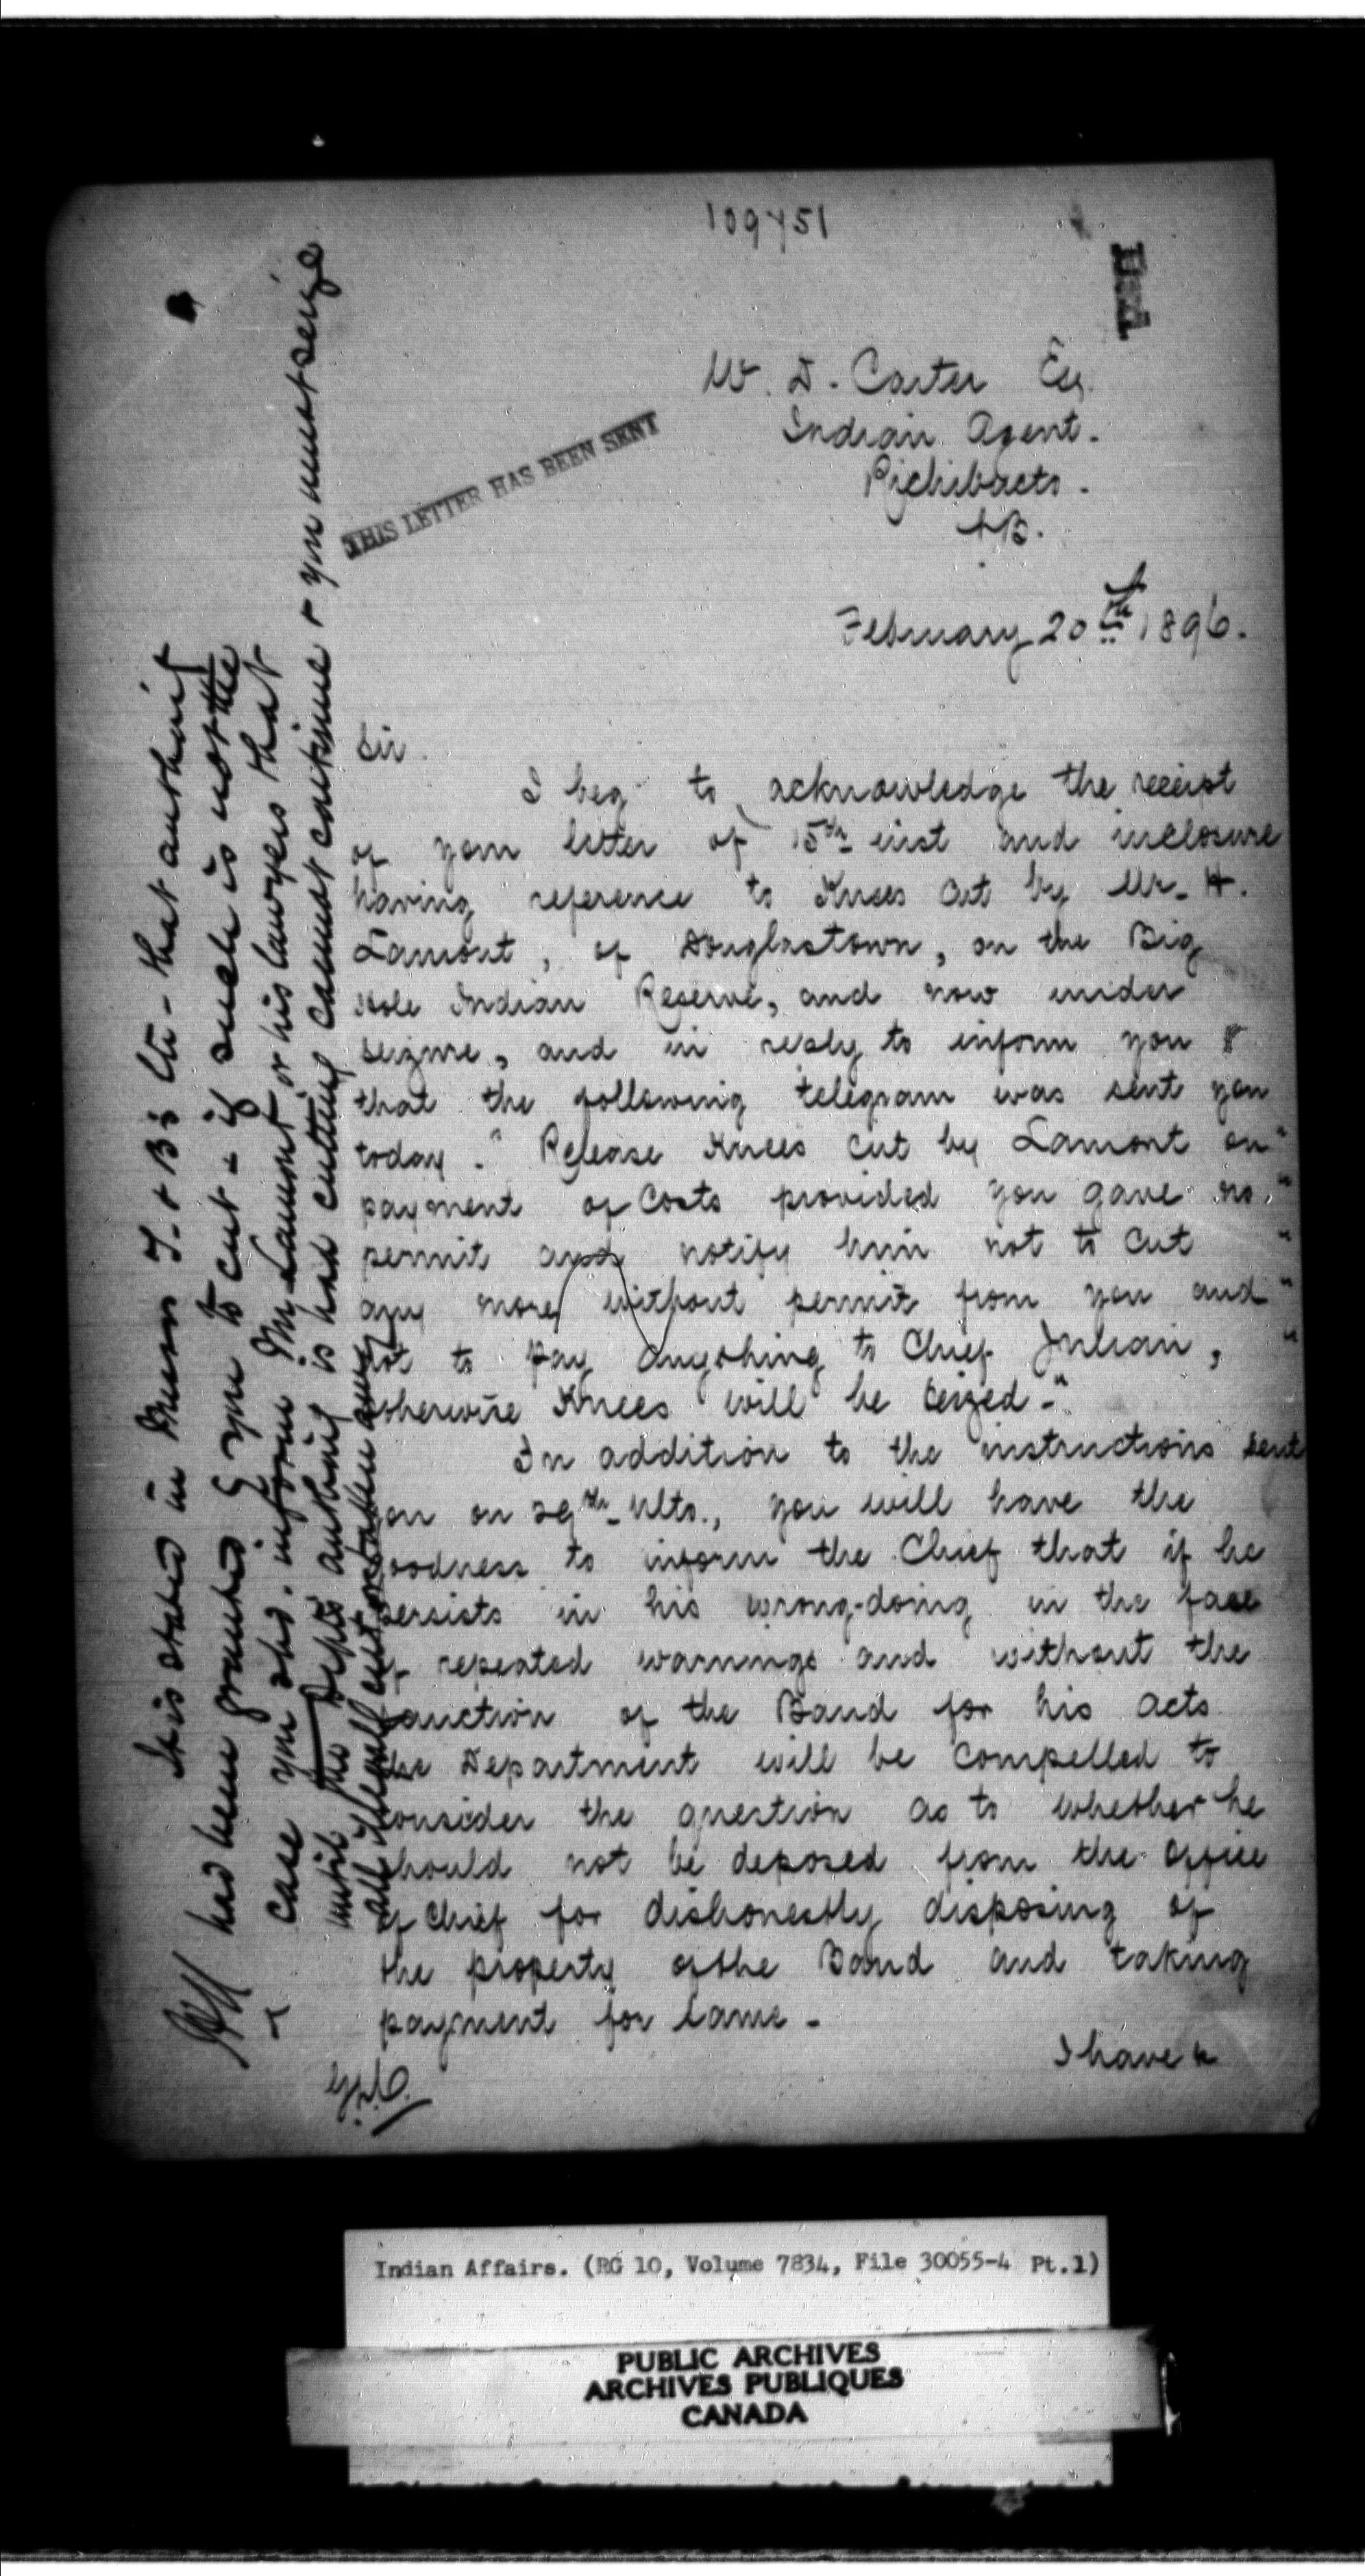 109751
Ind
W. D. Carter Esq.
Indian Agent.
Richibucto.
N.B.
THIS LETTER HAS BEEN SENT
February 20th 1896.
Sir.
I beg to acknowledge the receipt
of your letter of 15th inst and inclosure
having reference to Knees cut by Mr. H.
Lamont, of Douglastown, on the Big
Hole Indian Reserve, and now under
seizure, and in reply to inform you
that the following telegram was sent you
today. "Release Knees cut by Lamont on"
payment of Costs provided you gave no "
permit and notify him not to cut "
any more without permit from you and "
not to pay anything to Chief Julian, "
otherwise Knees will be seized."
In addition to the instructions sent
you on 29th Ulto., you will have the
goodness to inform the Chief that if he
persists in his wrong-doing in the face
of repeated warnings and without the
sanction of the Band for his acts
the Department will be compelled to
consider the question as to whether he
should not be deposed from the office
of Chief for dishonestly disposing of
the property of the Band and taking
payment for same.
I have &
It is stated in Messrs T. & B's ltr - that authority
had been granted by you to cut & if such is not the
case you shd. inform Mr Lamont or his lawyers that
until the Dept's authority is had cutting cannot continue & you must seize
all illegally cut or taken away
Indian Affairs. (RG 10, Volume 7834, File 30055-4 Pt.1)
PUBLIC ARCHIVES
ARCHIVES PUBLIQUES
CANADA